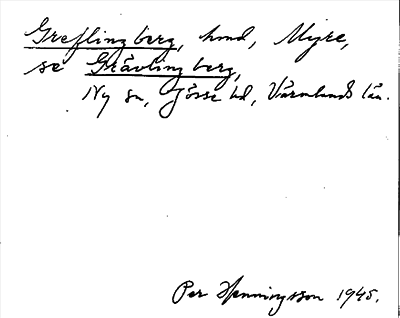 Greflingberg, hmd, Myre,
se Grävlingberg,
Ny sn, Jösse hd, Värmlands län.
Per Henningsson 1945.